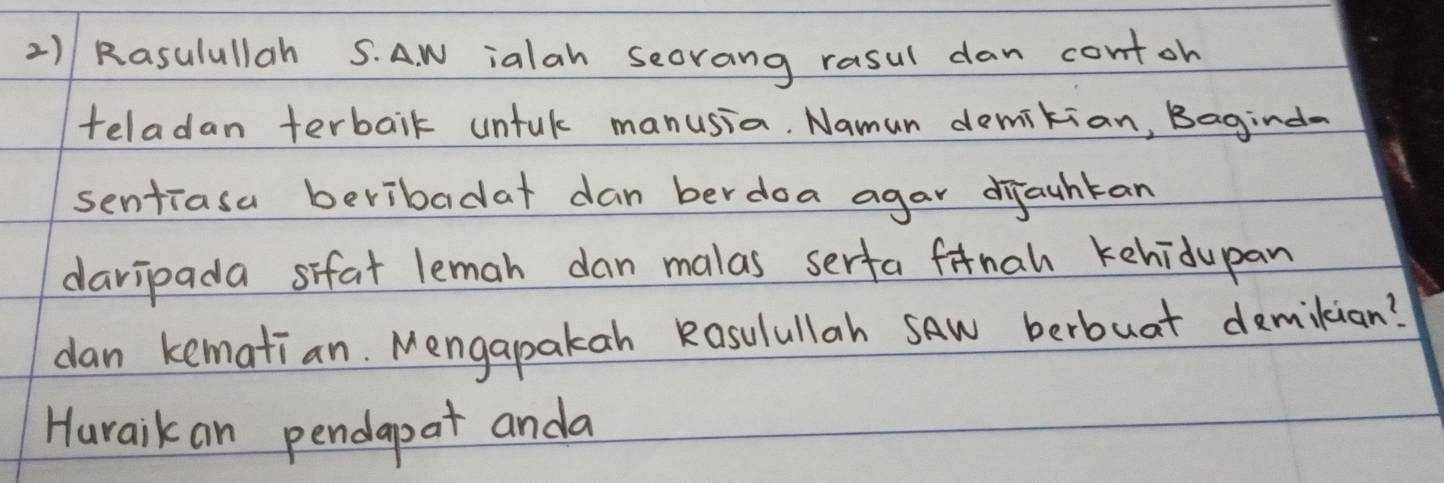 2) Rasulullah S.A.W ialah seorang rasul dan contoh
teladan terbaik untuk manusia. Namun demikian, Baginda
sentiasa beribadat dan berdoa agar dijauhkan
daripada sifat lemah dan malas serta fitnah kehidupan
dan kematian. Mengapakah Rasulullah SAW berbuat demikian?
Huraikan pendapat anda